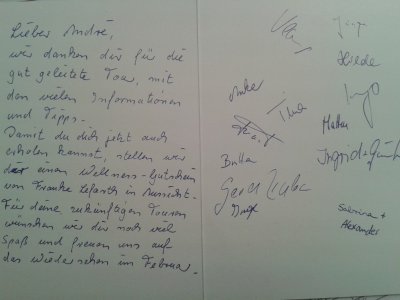 Lieber André,
wir danken dir für die
gut geleitete Tour, mit
den vielen Informationen
und Tipps.
Damit du dich jetzt auch
erholen kannst, stellen wir
dir einen Wellness-Gutschein
von Frauke in Aussicht.
Für deine zukünftigen Touren
wünschen wir dir noch viel
Spaß und freuen uns auf
das wiedersehen im Februar.
Hilde
Anke
Ingo
Britta
Gerd
Ingrid + Günter
Sabrina +
Alexander